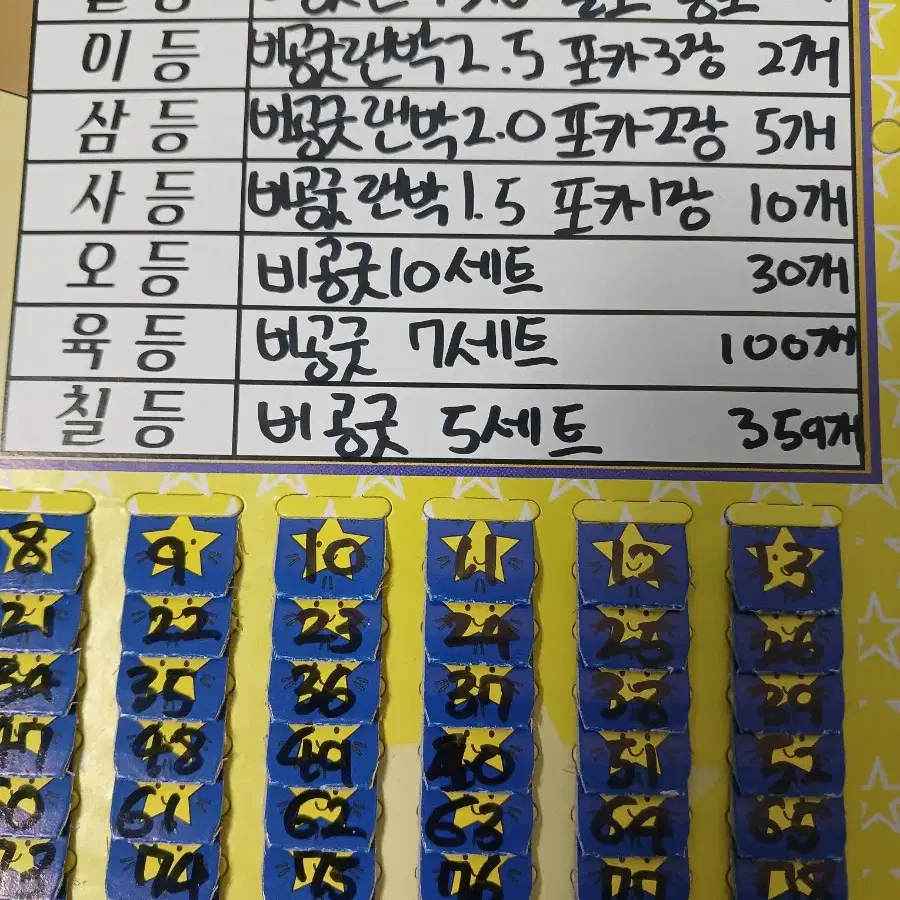 이등 비공굿랜박2.5 포카3장 2개
삼등 비공굿랜박2.0 포카2장 5개
사등 비공굿랜박1.5 포카1장 10개
오등 비공굿10세트 30개
육등 비공굿 7세트 100개
칠등 비공굿 5세트 359개
8 9 10 11 12 13
21 22 23 24 25 26
34 35 36 37 38 39
47 48 49 51 52
61 62 63 64 65
74 75 76 77 78